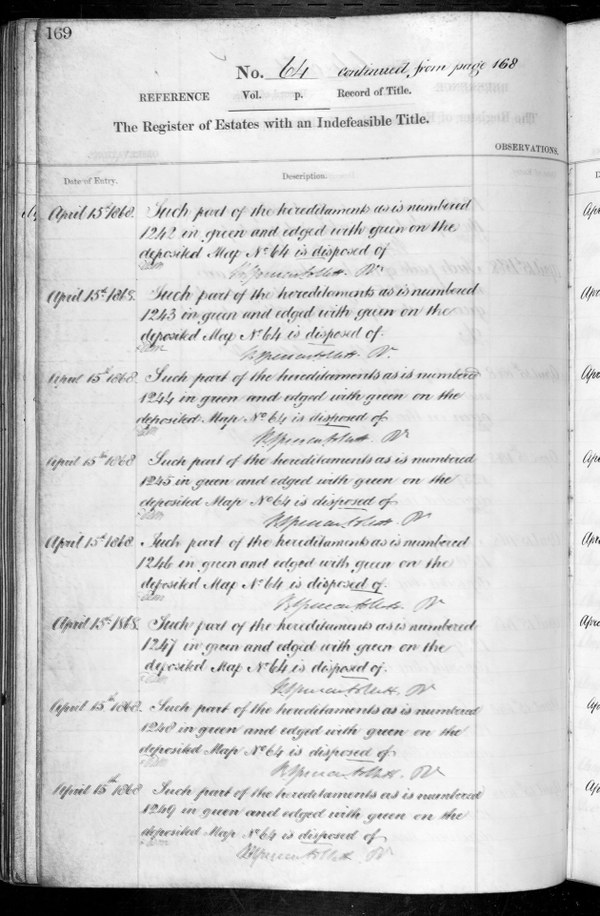 169
No. 64 continued from page 168
REFERENCE Vol. p. Record of Title.
The Register of Estates with an Indefeasible Title.
OBSERVATIONS.
Date of Entry. Description.
April 15th 1868. Such part of the hereditaments as is numbered
1242 in green and edged with green on the
deposited Map No 64 is disposed of
April 15th 1868. Such part of the hereditaments as is numbered
1243 in green and edged with green on the
deposited Map No 64 is disposed of.
April 15th 1868 Such part of the hereditaments as is numbered
1244 in green and edged with green on the
deposited Map No 64 is disposed of
April 15th 1868 Such part of the hereditaments as is numbered
1245 in green and edged with green on the
deposited Map No 64 is disposed of
April 15th 1868. Such part of the hereditaments as is numbered
1246 in green and edged with green on the
deposited Map No 64 is disposed of.
April 15th 1868. Such part of the hereditaments as is numbered
1247 in green and edged with green on the
deposited Map No 64 is disposed of.
April 15th 1868. Such part of the hereditaments as is numbered
1248 in green and edged with green on the
deposited Map No 64 is disposed of
April 15th 1868 Such part of the hereditaments as is numbered
1249 in green and edged with green on the
deposited Map No 64 is disposed of